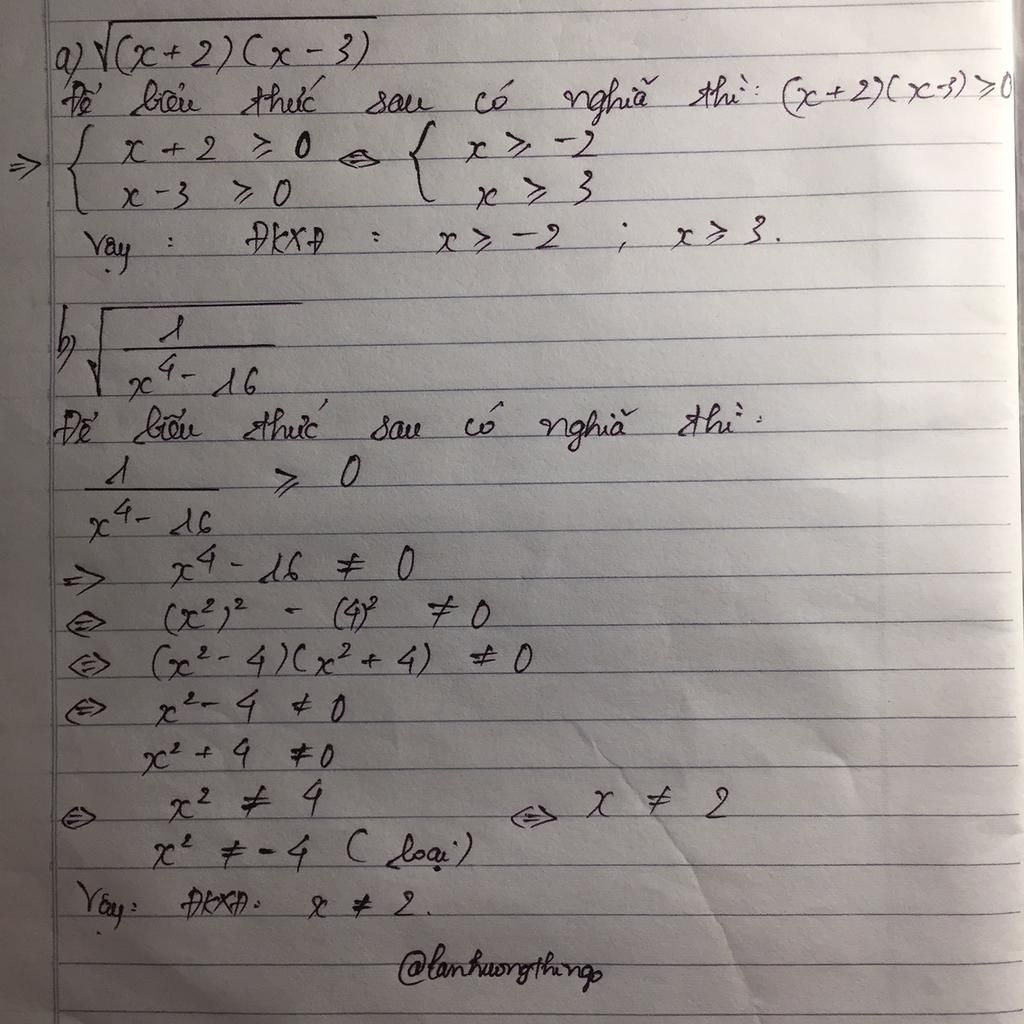 a) √(x+2)(x-3)
Để biểu thức sau có nghiã thì: (x+2)(x-3) ≥ 0
⇒ { x + 2 ≥ 0 ⇔ { x ≥ -2
x - 3 ≥ 0 x ≥ 3
Vậy : ĐKXĐ : x ≥ -2 ; x ≥ 3.
b) √(1/(x⁴ - 16))
Để biểu thức sau có nghiã thì:
1/(x⁴ - 16) ≥ 0
⇒ x⁴ - 16 ≠ 0
⇔ (x²)² - (4)² ≠ 0
⇔ (x² - 4)(x² + 4) ≠ 0
⇔ x² - 4 ≠ 0
x² + 4 ≠ 0
⇔ x² ≠ 4 ⇔ x ≠ 2
x² ≠ -4 (loại)
Vậy: ĐKXĐ: x ≠ 2.
@lanhuongthingo